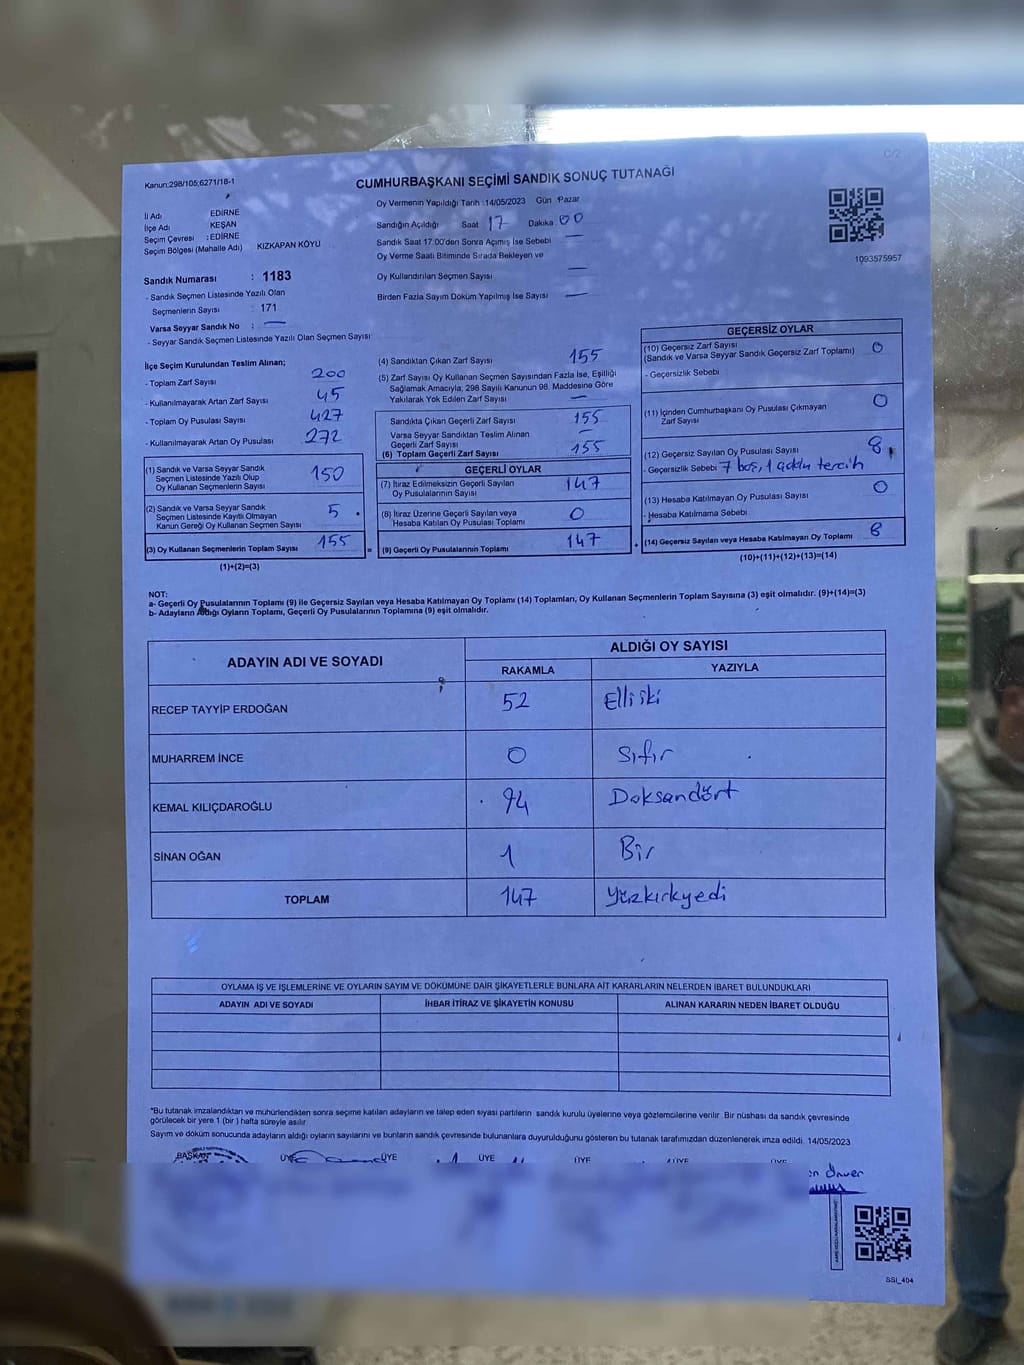 C/2
Kanun;298/105;6271/18-1
CUMHURBAŞKANI SEÇİMİ SANDIK SONUÇ TUTANAĞI
İli Adı EDİRNE
İlçe Adı KEŞAN
Seçim Çevresi :EDİRNE
Seçim Bölgesi (Mahalle Adı) KIZKAPAN KÖYÜ
Sandık Numarası : 1183
- Sandık Seçmen Listesinde Yazılı Olan
Seçmenlerin Sayısı : 171
Varsa Seyyar Sandık No :
- Seyyar Sandık Seçmen Listesinde Yazılı Olan Seçmen Sayısı:
Oy Vermenin Yapıldığı Tarih :14/05/2023 Gün :Pazar
Sandığın Açıldığı Saat 17 Dakika 00
Sandık Saat 17:00'den Sonra Açımış İse Sebebi
Oy Verme Saati Bitiminde Sırada Bekleyen ve
Oy Kullandırılan Seçmen Sayısı
Birden Fazla Sayım Döküm Yapılmış İse Sayısı
1093575957
İlçe Seçim Kurulundan Teslim Alınan;
- Toplam Zarf Sayısı 200
- Kullanılmayarak Artan Zarf Sayısı 45
- Toplam Oy Pusulası Sayısı 427
- Kullanılmayarak Artan Oy Pusulası 272
(1) Sandık ve Varsa Seyyar Sandık
Seçmen Listesinde Yazılı Olup
Oy Kullanan Seçmenlerin Sayısı 150
(2) Sandık ve Varsa Seyyar Sandık
Seçmen Listesinde Kayıtlı Olmayan
Kanun Gereği Oy Kullanan Seçmen Sayısı 5
(3) Oy Kullanan Seçmenlerin Toplam Sayısı 155
(1)+(2)=(3)
(4) Sandıktan Çıkan Zarf Sayısı 155
(5) Zarf Sayısı Oy Kullanan Seçmen Sayısından Fazla İse, Eşitliği
Sağlamak Amacıyla, 298 Sayılı Kanunun 98. Maddesine Göre
Yakılarak Yok Edilen Zarf Sayısı
Sandıkta Çıkan Geçerli Zarf Sayısı 155
Varsa Seyyar Sandıktan Teslim Alınan
Geçerli Zarf Sayısı
(6) Toplam Geçerli Zarf Sayısı 155
GEÇERLİ OYLAR
(7) İtiraz Edilmeksizin Geçerli Sayılan
Oy Pusulalarının Sayısı 147
(8) İtiraz Üzerine Geçerli Sayılan veya
Hesaba Katılan Oy Pusulası Toplamı 0
= (9) Geçerli Oy Pusulalarının Toplamı 147
GEÇERSİZ OYLAR
(10) Geçersiz Zarf Sayısı
(Sandık ve Varsa Seyyar Sandık Geçersiz Zarf Toplamı) 0
- Geçersizlik Sebebi
(11) İçinden Cumhurbaşkanı Oy Pusulası Çıkmayan
Zarf Sayısı 0
(12) Geçersiz Sayılan Oy Pusulası Sayısı 8
- Geçersizlik Sebebi 7 boş,
(13) Hesaba Katılmayan Oy Pusulası Sayısı 0
- Hesaba Katılmama Sebebi
+ (14) Geçersiz Sayılan veya Hesaba Katılmayan Oy Toplamı 8
(10)+(11)+(12)+(13)=(14)
NOT:
a- Geçerli Oy Pusulalarının Toplamı (9) ile Geçersiz Sayılan veya Hesaba Katılmayan Oy Toplamı (14) Toplamları, Oy Kullanan Seçmenlerin Toplam Sayısına (3) eşit olmalıdır. (9)+(14)=(3)
b- Adayların Aldığı Oyların Toplamı, Geçerli Oy Pusulalarının Toplamına (9) eşit olmalıdır.
ADAYIN ADI VE SOYADI ALDIĞI OY SAYISI
RAKAMLA YAZIYLA
RECEP TAYYİP ERDOĞAN 52 Elli iki
MUHARREM İNCE 0 Sıfır
KEMAL KILIÇDAROĞLU 94 Doksandört
SİNAN OĞAN 1 Bir
TOPLAM 147 Yüzkırkyedi
OYLAMA İŞ VE İŞLEMLERİNE VE OYLARIN SAYIM VE DÖKÜMÜNE DAİR ŞİKAYETLERLE BUNLARA AİT KARARLARIN NELERDEN İBARET BULUNDUKLARI
ADAYIN ADI VE SOYADI İHBAR İTİRAZ VE ŞİKAYETİN KONUSU ALINAN KARARIN NEDEN İBARET OLDUĞU
"Bu tutanak imzalandıktan ve mühürlendikten sonra seçime katılan adayların ve talep eden siyasi partilerin sandık kurulu üyelerine veya gözlemcilerine verilir. Bir nüshası da sandık çevresinde
görülecek bir yere 1 (bir) hafta süreyle asılır.
Sayım ve döküm sonucunda adayların aldığı oyların sayılarını ve bunların sandık çevresinde bulunanlara duyurulduğunu gösteren bu tutanak tarafımızdan düzenlenerek imza edildi. 14/05/2023
BAŞKAN ÜYE ÜYE ÜYE ÜYE
SSI_404